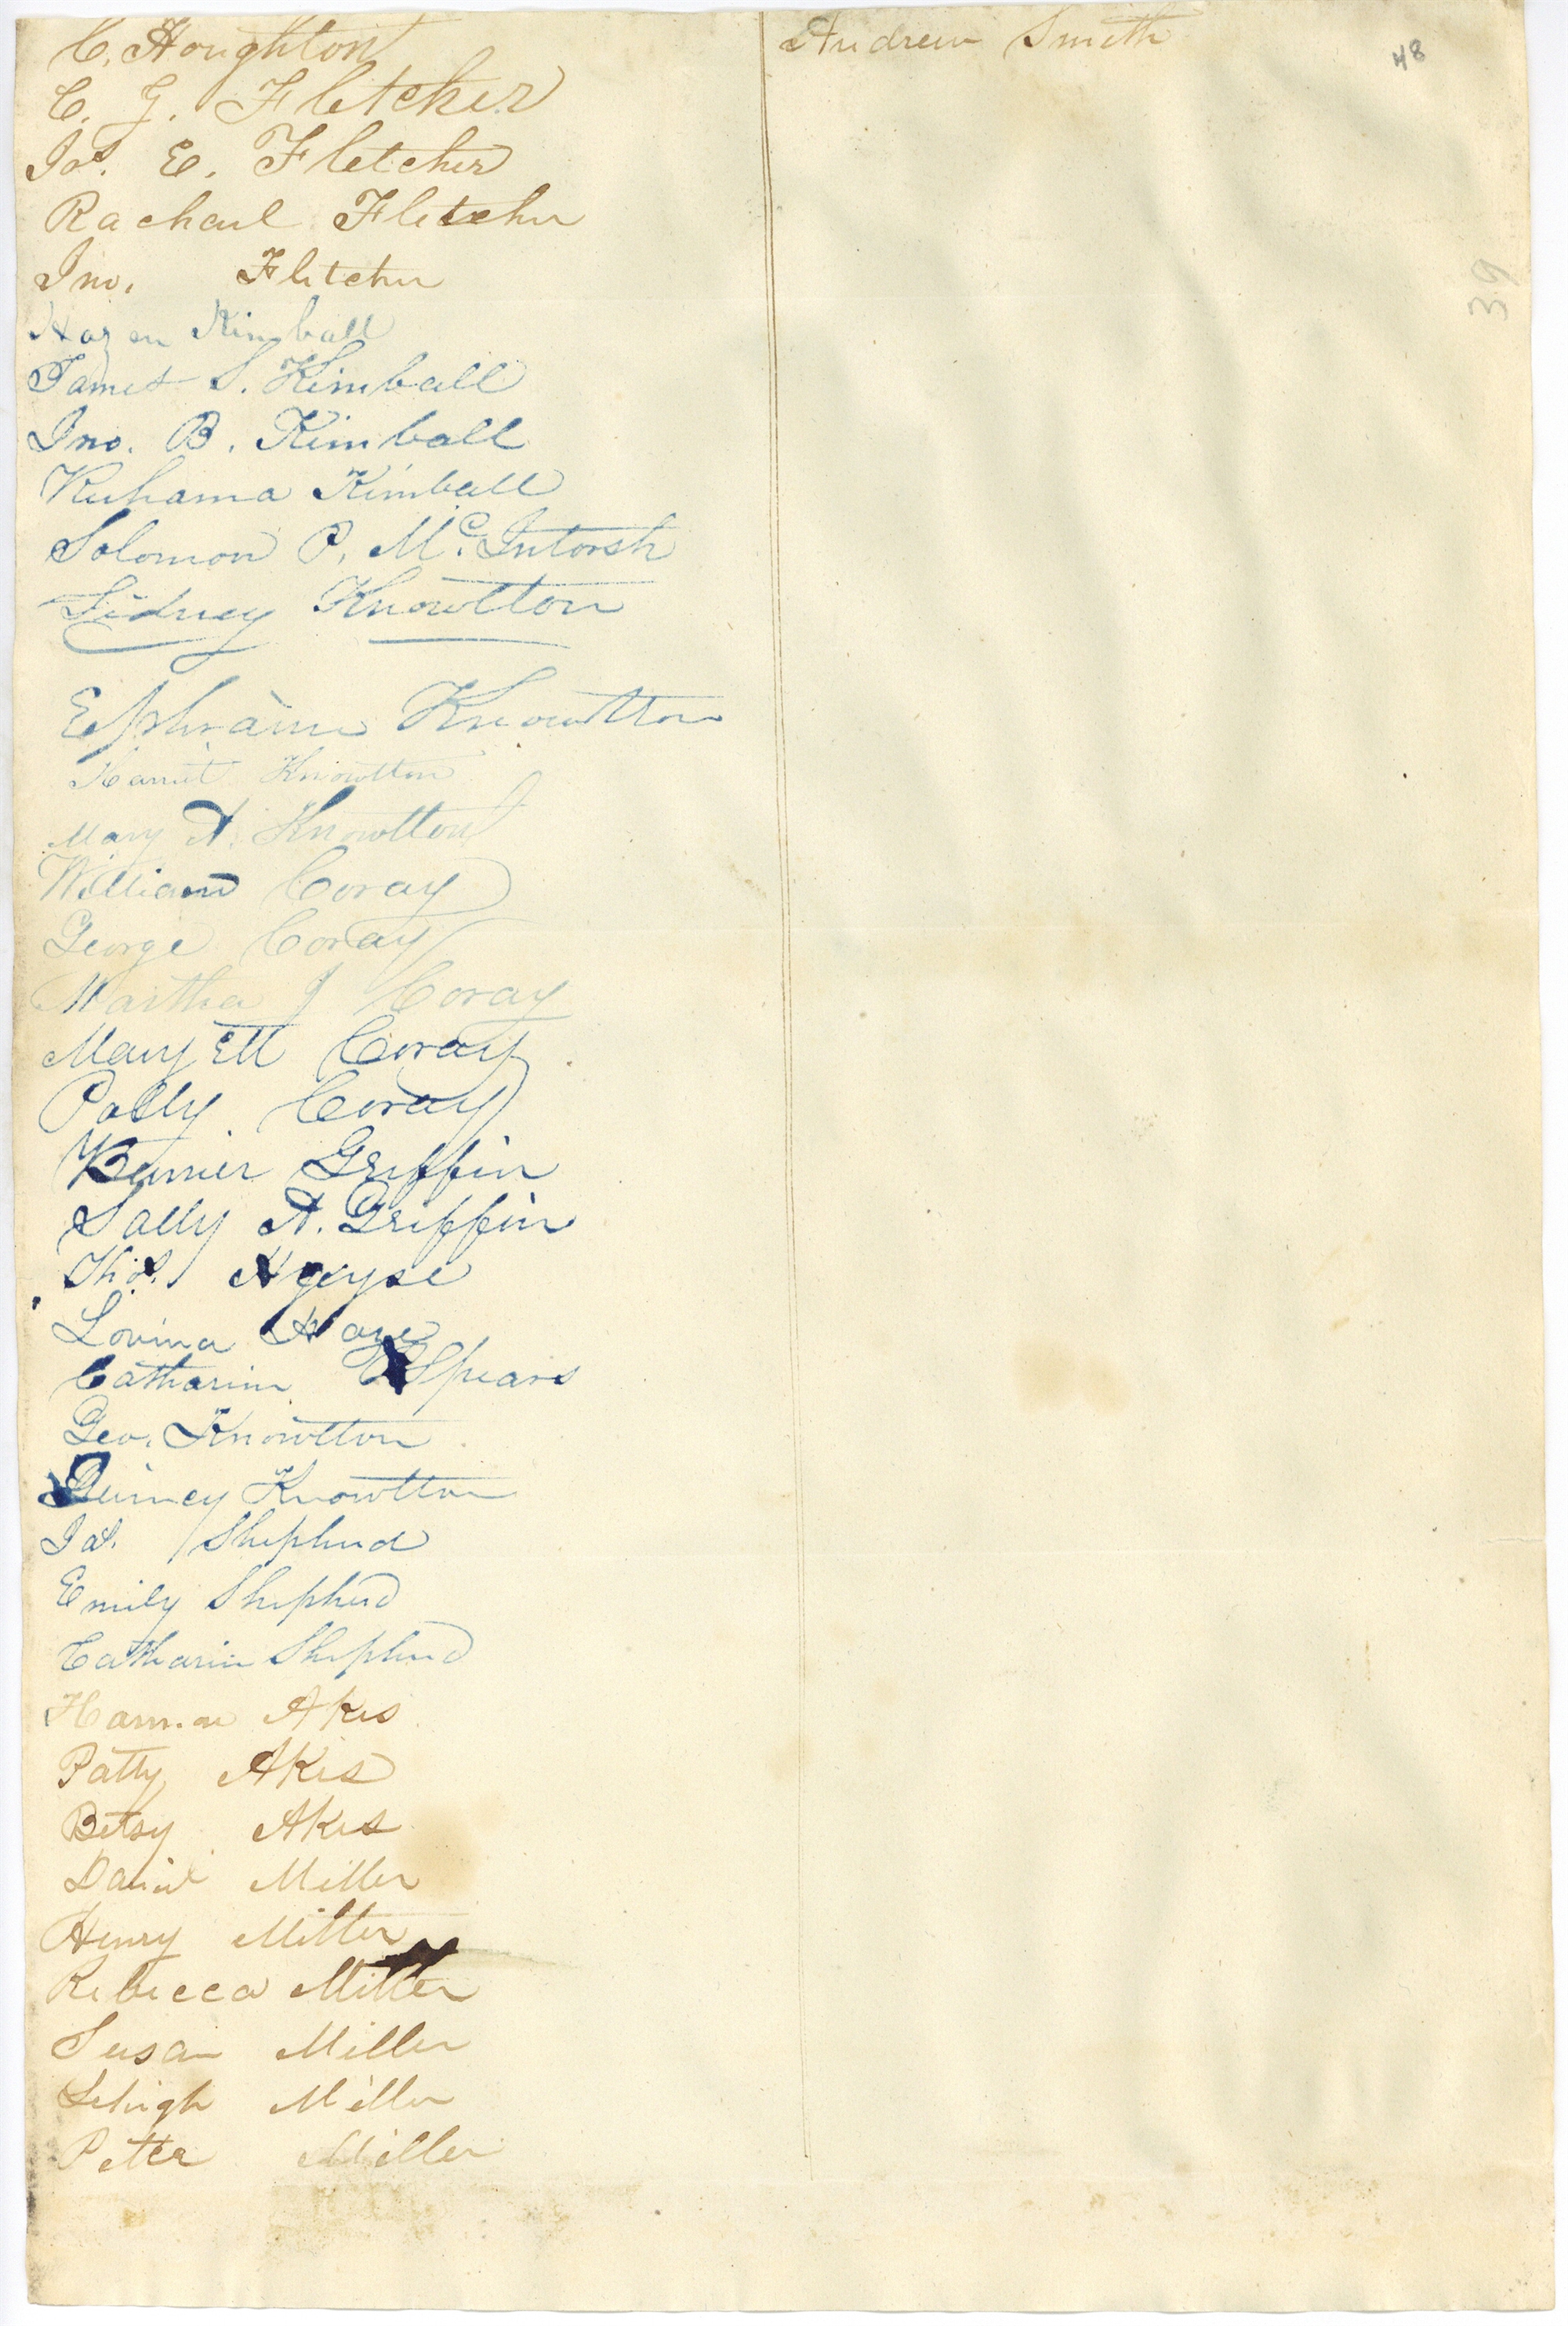 C. Houghton
C. G. Fletcher
Jas. E. Fletcher
Rachael Fletcher
Jno. Fletcher
Hazen Kimball
James S. Kimball
Jno. B. Kimball
Ruhama Kimball
Solomon P. McIntorsh
Sidney Knowlton
Ephraim Knowlton
Harriet Knowlton
Mary A. Knowlton
William Coray
George Coray
Martha J Coray
Mary Ett Coray
Polly Coray
Griffin
Sally A. Griffin
Thos.
Lovina
Catharine Spears
Geo. Knowlton
Quincy Knowlton
Jas. Shepherd
Emily Shepherd
Catharine Shepherd
Akes
Patty Akes
Betsy Akes
Daniel Miller
Henry Miller
Rebecca Miller
Susan Miller
Lehigh Miller
Peter Miller
Andrew Smith
48
39